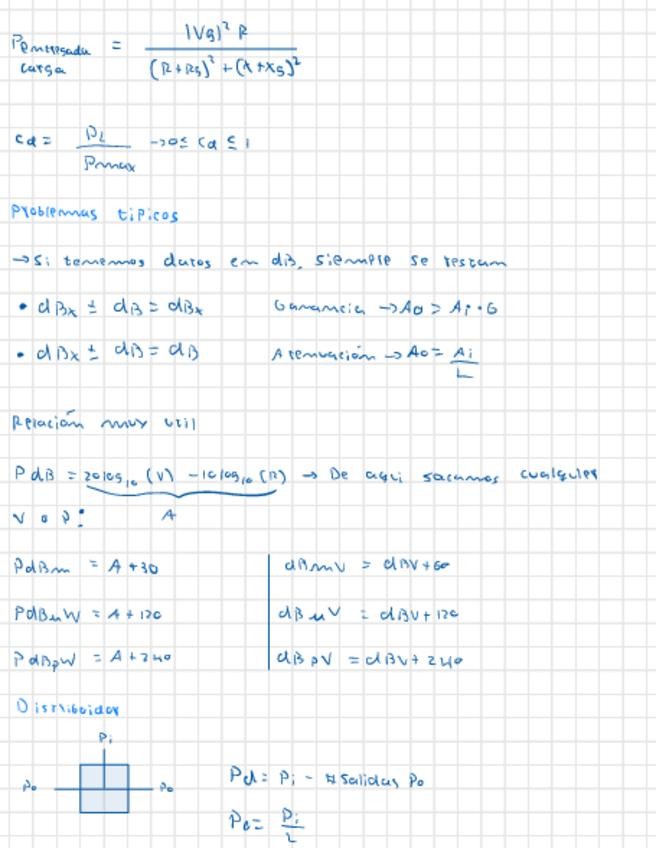 Pentregada carga = |Vg|² R / (R+Rg)² + (X+Xg)²
Cd = PL / Pmax → 0 ≤ Cd ≤ 1
Problemas tipicos
→ Si tenemos datos en dB, siempre se restan
• dBx ± dB = dBx Ganancia → Ao = Ai · G
• dBx ± dB = dB Atenuación → Ao = Ai / L
Relación muy util
PdB = 20log₁₀ (V) - 10log₁₀ (R) → De aqui sacamos cualquier
V o P: A
PdBm = A + 30 dBmV = dBV + 60
PdBuW = A + 120 dBuV = dBV + 120
PdBpW = A + 240 dBpV = dBV + 240
Distribuidor
Pi
Po Po Pd = Pi - #salidas Po
Pe = Pi / L